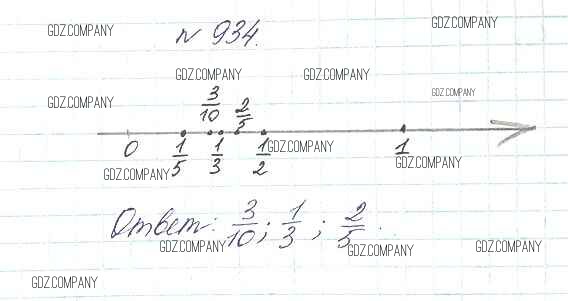 GDZ.COMPANY № 934. GDZ.COMPANY
GDZ.COMPANY GDZ.COMPANY
GDZ.COMPANY 3/10 2/5 GDZ.COMPANY
0 1/5 1/3 1/2 GDZ.COMPANY 1
GDZ.COMPANY GDZ.COMPANY
Ответ: 3/10; 1/3; 2/5.
GDZ.COMPANY GDZ.COMPANY GDZ.COMPANY
GDZ.COMPANY